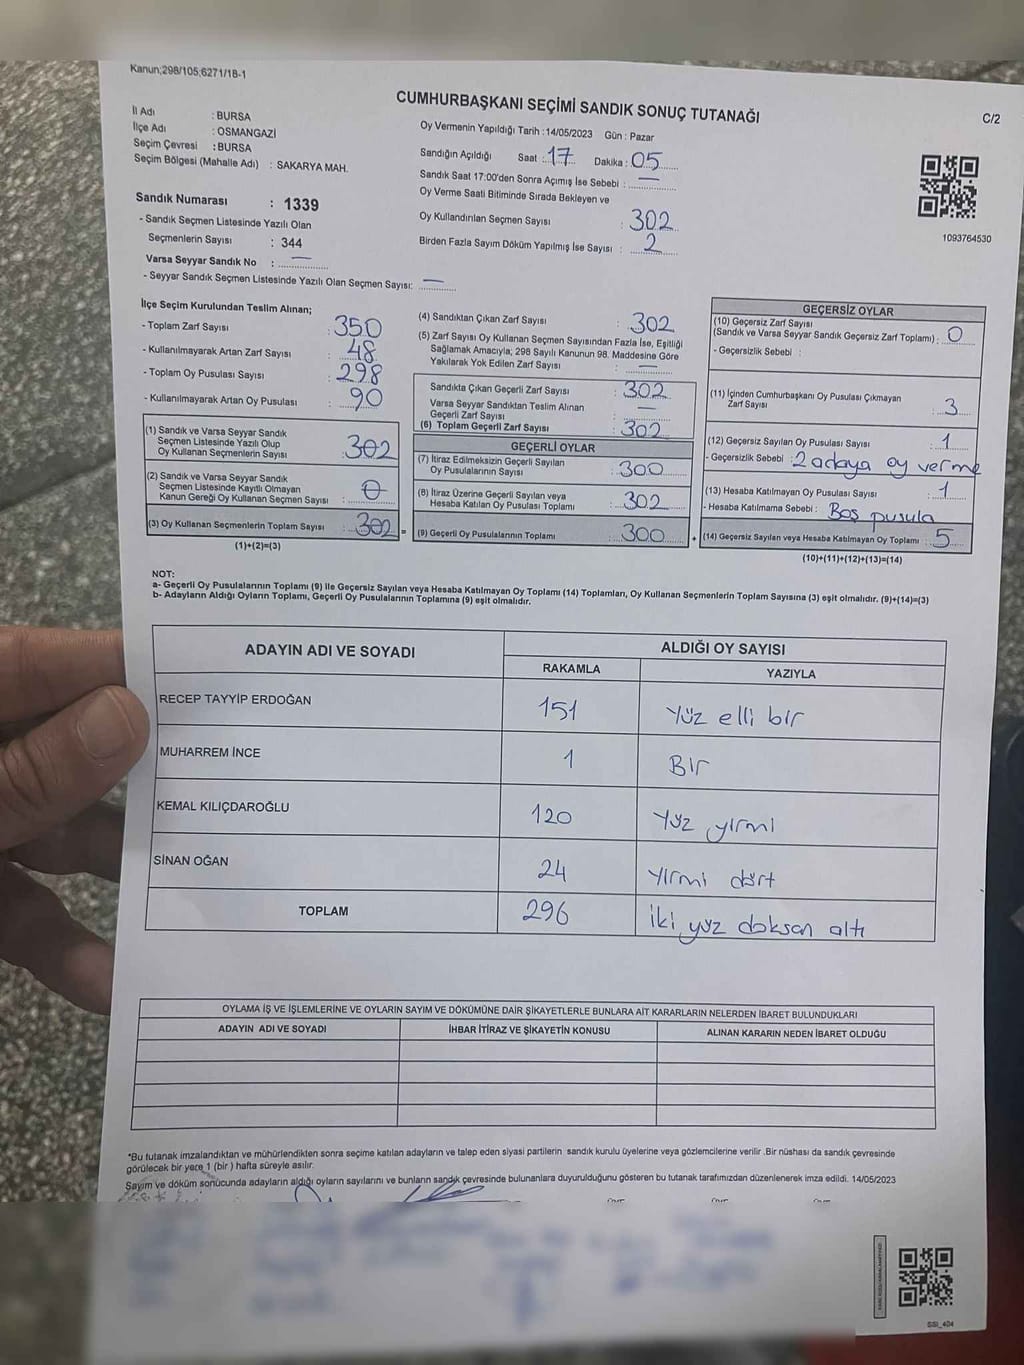 Kanun;298/105;6271/18-1
CUMHURBAŞKANI SEÇİMİ SANDIK SONUÇ TUTANAĞI
C/2
İl Adı : BURSA
İlçe Adı : OSMANGAZİ
Seçim Çevresi : BURSA
Seçim Bölgesi (Mahalle Adı) : SAKARYA MAH.
Oy Vermenin Yapıldığı Tarih : 14/05/2023 Gün : Pazar
Sandığın Açıldığı Saat : 17 Dakika : 05
Sandık Saat 17:00'den Sonra Açımış İse Sebebi : —
Oy Verme Saati Bitiminde Sırada Bekleyen ve
Oy Kullandırılan Seçmen Sayısı : 302
Birden Fazla Sayım Döküm Yapılmış İse Sayısı : 2
1093764530
Sandık Numarası : 1339
- Sandık Seçmen Listesinde Yazılı Olan
Seçmenlerin Sayısı : 344
Varsa Seyyar Sandık No : —
- Seyyar Sandık Seçmen Listesinde Yazılı Olan Seçmen Sayısı: —
İlçe Seçim Kurulundan Teslim Alınan;
- Toplam Zarf Sayısı : 350
- Kullanılmayarak Artan Zarf Sayısı : 48
- Toplam Oy Pusulası Sayısı : 298
- Kullanılmayarak Artan Oy Pusulası : 90
(1) Sandık ve Varsa Seyyar Sandık
Seçmen Listesinde Yazılı Olup
Oy Kullanan Seçmenlerin Sayısı : 302
(2) Sandık ve Varsa Seyyar Sandık
Seçmen Listesinde Kayıtlı Olmayan
Kanun Gereği Oy Kullanan Seçmen Sayısı : 0
(3) Oy Kullanan Seçmenlerin Toplam Sayısı : 302 =
(1)+(2)=(3)
(4) Sandıktan Çıkan Zarf Sayısı : 302
(5) Zarf Sayısı Oy Kullanan Seçmen Sayısından Fazla İse, Eşitliği
Sağlamak Amacıyla; 298 Sayılı Kanunun 98. Maddesine Göre
Yakılarak Yok Edilen Zarf Sayısı : —
Sandıkta Çıkan Geçerli Zarf Sayısı : 302
Varsa Seyyar Sandıktan Teslim Alınan
Geçerli Zarf Sayısı : —
(6) Toplam Geçerli Zarf Sayısı : 302
GEÇERLİ OYLAR
(7) İtiraz Edilmeksizin Geçerli Sayılan
Oy Pusulalarının Sayısı : 300
(8) İtiraz Üzerine Geçerli Sayılan veya
Hesaba Katılan Oy Pusulası Toplamı : 302
(9) Geçerli Oy Pusulalarının Toplamı : 300 +
GEÇERSİZ OYLAR
(10) Geçersiz Zarf Sayısı
(Sandık ve Varsa Seyyar Sandık Geçersiz Zarf Toplamı) : 0
- Geçersizlik Sebebi :
(11) İçinden Cumhurbaşkanı Oy Pusulası Çıkmayan
Zarf Sayısı : 3
(12) Geçersiz Sayılan Oy Pusulası Sayısı : 1
- Geçersizlik Sebebi : 2 adaya oy verme
(13) Hesaba Katılmayan Oy Pusulası Sayısı : 1
- Hesaba Katılmama Sebebi : Boş pusula
(14) Geçersiz Sayılan veya Hesaba Katılmayan Oy Toplamı : 5
(10)+(11)+(12)+(13)=(14)
NOT:
a- Geçerli Oy Pusulalarının Toplamı (9) ile Geçersiz Sayılan veya Hesaba Katılmayan Oy Toplamı (14) Toplamları, Oy Kullanan Seçmenlerin Toplam Sayısına (3) eşit olmalıdır. (9)+(14)=(3)
b- Adayların Aldığı Oyların Toplamı, Geçerli Oy Pusulalarının Toplamına (9) eşit olmalıdır.
ADAYIN ADI VE SOYADI ALDIĞI OY SAYISI
RAKAMLA YAZIYLA
RECEP TAYYİP ERDOĞAN 151 Yüz elli bir
MUHARREM İNCE 1 Bir
KEMAL KILIÇDAROĞLU 120 Yüz yirmi
SİNAN OĞAN 24 Yirmi dört
TOPLAM 296 İki yüz doksan altı
OYLAMA İŞ VE İŞLEMLERİNE VE OYLARIN SAYIM VE DÖKÜMÜNE DAİR ŞİKAYETLERLE BUNLARA AİT KARARLARIN NELERDEN İBARET BULUNDUKLARI
ADAYIN ADI VE SOYADI İHBAR İTİRAZ VE ŞİKAYETİN KONUSU ALINAN KARARIN NEDEN İBARET OLDUĞU
*Bu tutanak imzalandıktan ve mühürlendikten sonra seçime katılan adayların ve talep eden siyasi partilerin sandık kurulu üyelerine veya gözlemcilerine verilir .Bir nüshası da sandık çevresinde
görülecek bir yere 1 (bir ) hafta süreyle asılır.
Sayım ve döküm sonucunda adayların aldığı oyların sayılarını ve bunların sandık çevresinde bulunanlara duyurulduğunu gösteren bu tutanak tarafımızdan düzenlenerek imza edildi. 14/05/2023
SSI_404